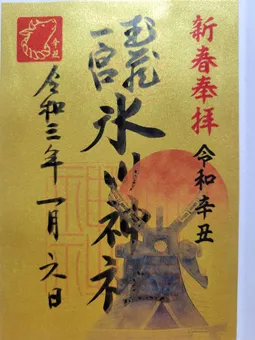 新春奉拝
令和辛丑
一宮
氷川神社
令和三年一月六日
辛丑